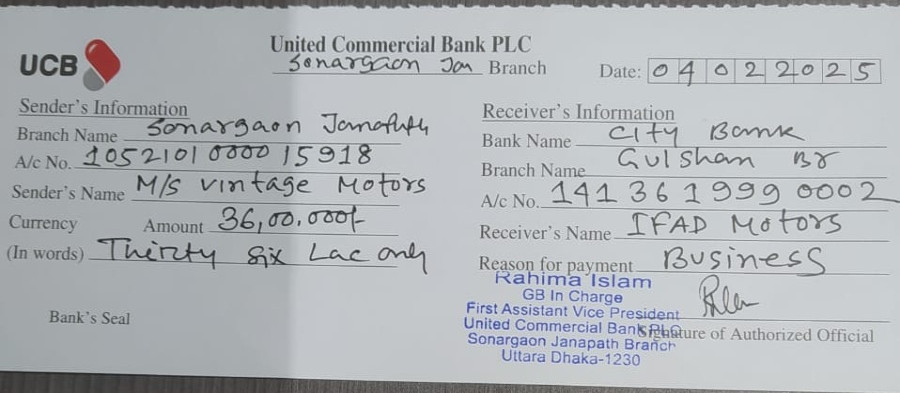 UCB
United Commercial Bank PLC
Sonargaon Jan Branch
Date: 04022025
Sender's Information
Branch Name Sonargaon Janapath
A/c No. 1052101000015918
Sender's Name M/S vintage Motors
Currency Amount 36,00,000/-
(In words) Thirty Six Lac only
Bank's Seal
Receiver's Information
Bank Name City Bank
Branch Name Gulshan Br
A/c No. 1413619990002
Receiver's Name IFAD Motors
Reason for payment Business
Rahima Islam
GB In Charge
First Assistant Vice President
United Commercial Bank PLC
Sonargaon Janapath Branch
Uttara Dhaka-1230
Signature of Authorized Official